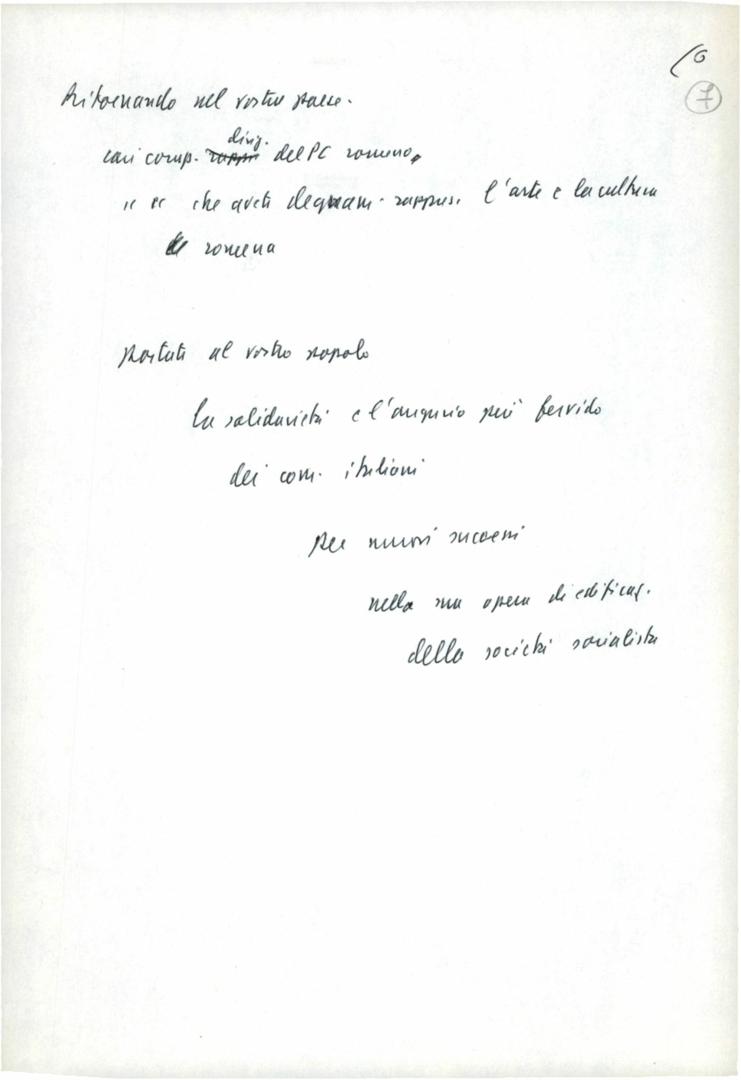 6
7
Ritornando nel vostro paese.
cari comp. dirig. del PC romeno,
" " che avete degnam. rappres. l'arte e la cultura
romena
portate al vostro popolo
la solidarietà e l'augurio più fervido
dei com. italiani
per nuovi successi
nella sua opera di edificaz.
della società socialista